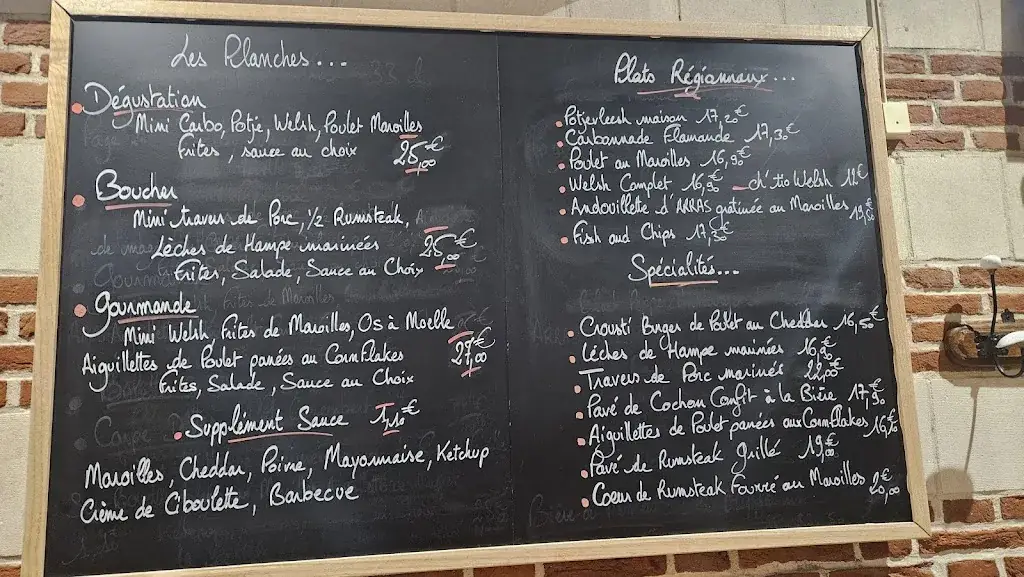 Les Planches...
Dégustation
Mini Carbo, Potje, Welsh, Poulet Maroilles
Frites, sauce au choix 25,00€
Boucher
Mini travers de Porc, 1/2 Rumsteak,
Lèches de Hampe marinées 25,00€
Frites, Salade, Sauce au Choix
Gourmande
Mini Welsh, Frites de Maroilles, Os à Moelle
Aiguillettes de Poulet panées au CornFlakes 27,00€
Frites, Salade, Sauce au Choix
Supplément Sauce 1,10€
Maroilles, Cheddar, Poivre, Mayonnaise, Ketchup
Crème de Ciboulette, Barbecue
Plats Régionnaux...
Potjevleesh maison 17,20€
Carbonnade Flamande 17,30€
Poulet au Maroilles 16,90€
Welsh Complet 16,90€ ch'tio Welsh 12€
Andouillette d'ARRAS gratinée au Maroilles 19,50
Fish and Chips 17,50€
Spécialités...
Crousti Burger de Poulet au Cheddar 16,50€
Lèches de Hampe marinées 16,90€
Travers de Porc marinés 22,00€
Pavé de Cochon Confit à la Bière 17,90€
Aiguillettes de Poulet panées aux CornFlakes 16,50€
Pavé de Rumsteak Grillé 19,00€
Coeur de Rumsteak Fourré au Maroilles 20,00€